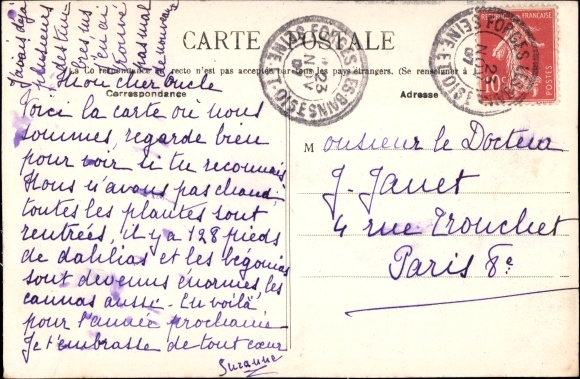 J'avais déjà
plusieurs
des tim
bres, nous
en ai
trouvé
pas mal
de nouveaux
CARTE POSTALE
La Correspondance au recto n'est pas acceptée par tous les pays étrangers. (Se renseigner à la
Correspondance
Adresse
FORGES LES BAINS
SEINE-ET-OISE
2
NOV
07
RÉPUBLIQUE FRANÇAISE
10c
Mon cher oncle
Voici la carte où nous
sommes, regarde bien
pour voir si tu reconnais
Nous n'avons pas chaud;
toutes les plantes sont
rentrées, il y a 128 pieds
de dahlias et les bégonias
sont devenus énormes, les
cannas aussi. En voilà
pour l'année prochaine
Je t'embrasse de tout cœur
Suzanne
Monsieur le Docteur
J. Janet
4 rue Tronchet
Paris 8e